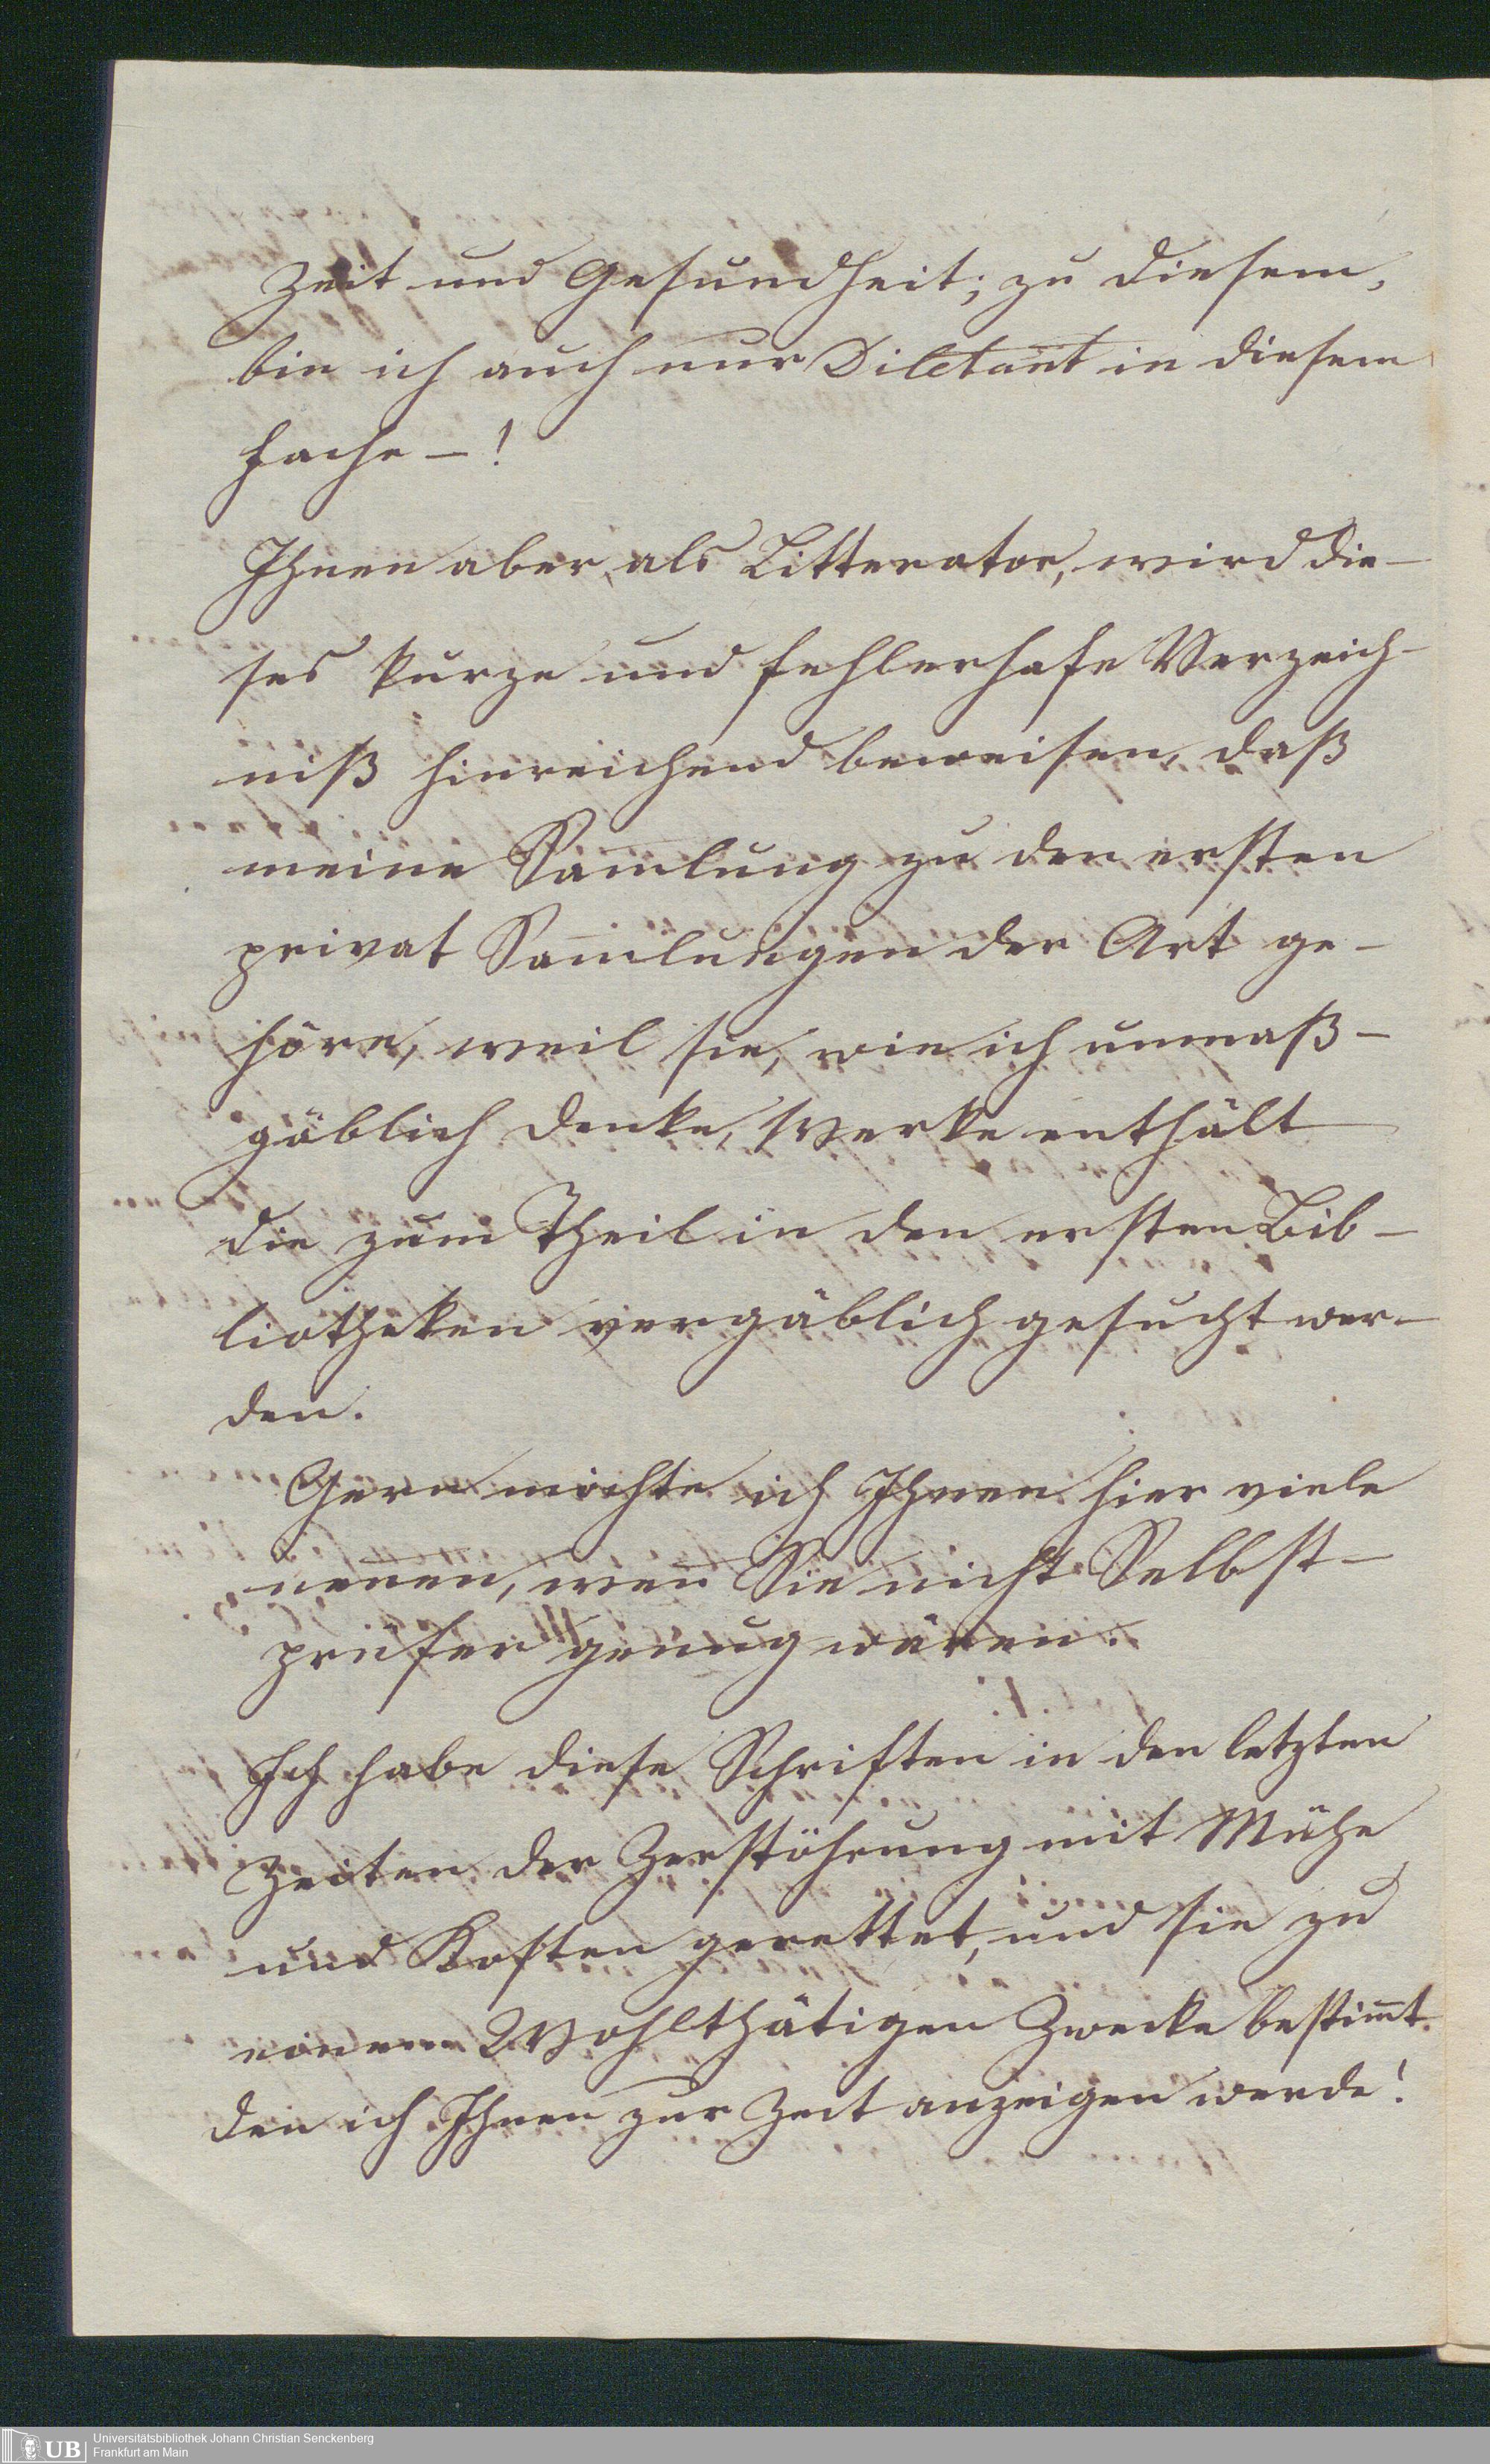 Zeit und Gesundheit; zu diesem,
bin ich auch nur Diletant in diesem
Fache – !
Ihnen aber, als Litterator, wird die-
ses kurze und fehlerhafe Verzeich-
niß hinreichend beweisen, daß
meine Sam̄lung zu den ersten
privat Sam̄lungen der Art ge-
höre, weil sie, wie ich unmaß-
gäblich denke, Werke enthält
die zum Theil in den ersten Bib-
liotheken vergäblich gesucht wer-
den.
Gern möchte ich Ihnen hier viele
nennen, wen̄ Sie nicht Selbst-
prüfer genug wären.
Ich habe diese Schriften in den letzten
Zeiten der Zerstöhrung mit Mühe
und Kosten gerettet, und sie zu
einem Wohlthätigen Zwecke bestim̄t.
den ich Ihnen zur Zeit anzeigen werde!
UB
Universitätsbibliothek Johann Christian Senckenberg
Frankfurt am Main